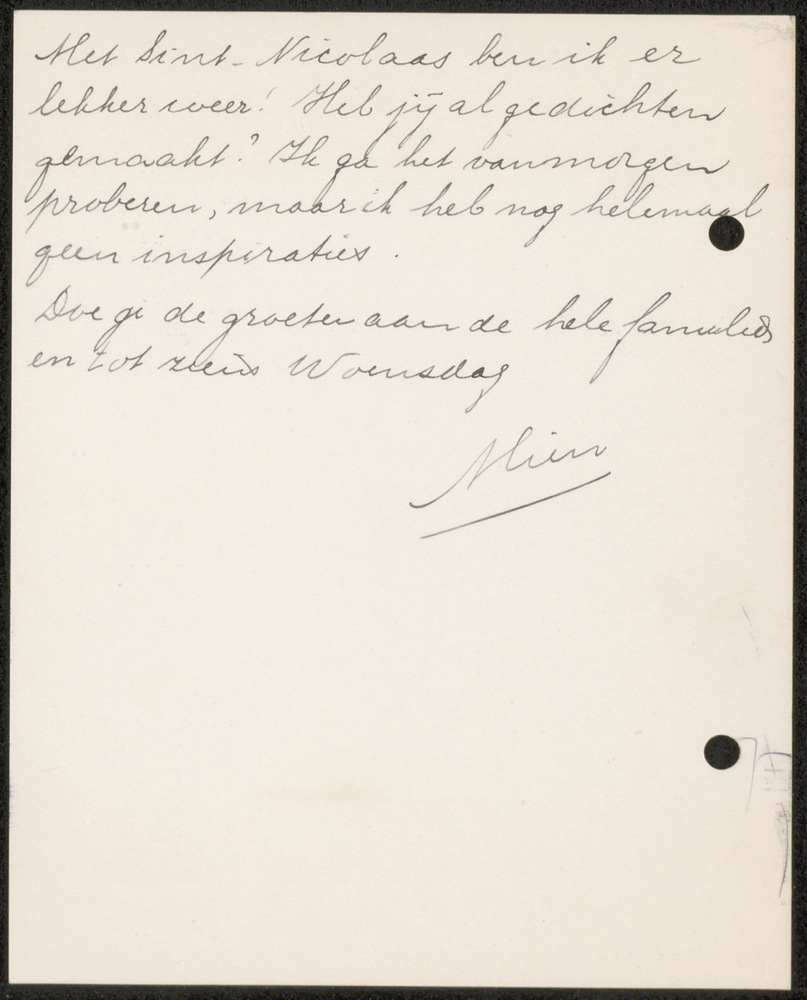 Met Sint-Nicolaas ben ik er
lekker weer! Heb jij al gedichten
gemaakt? Ik ga het vanmorgen
proberen, maar ik heb nog helemaal
geen inspiraties.
Doe je de groeten aan de hele familie
en tot ziens Woensdag
Mien